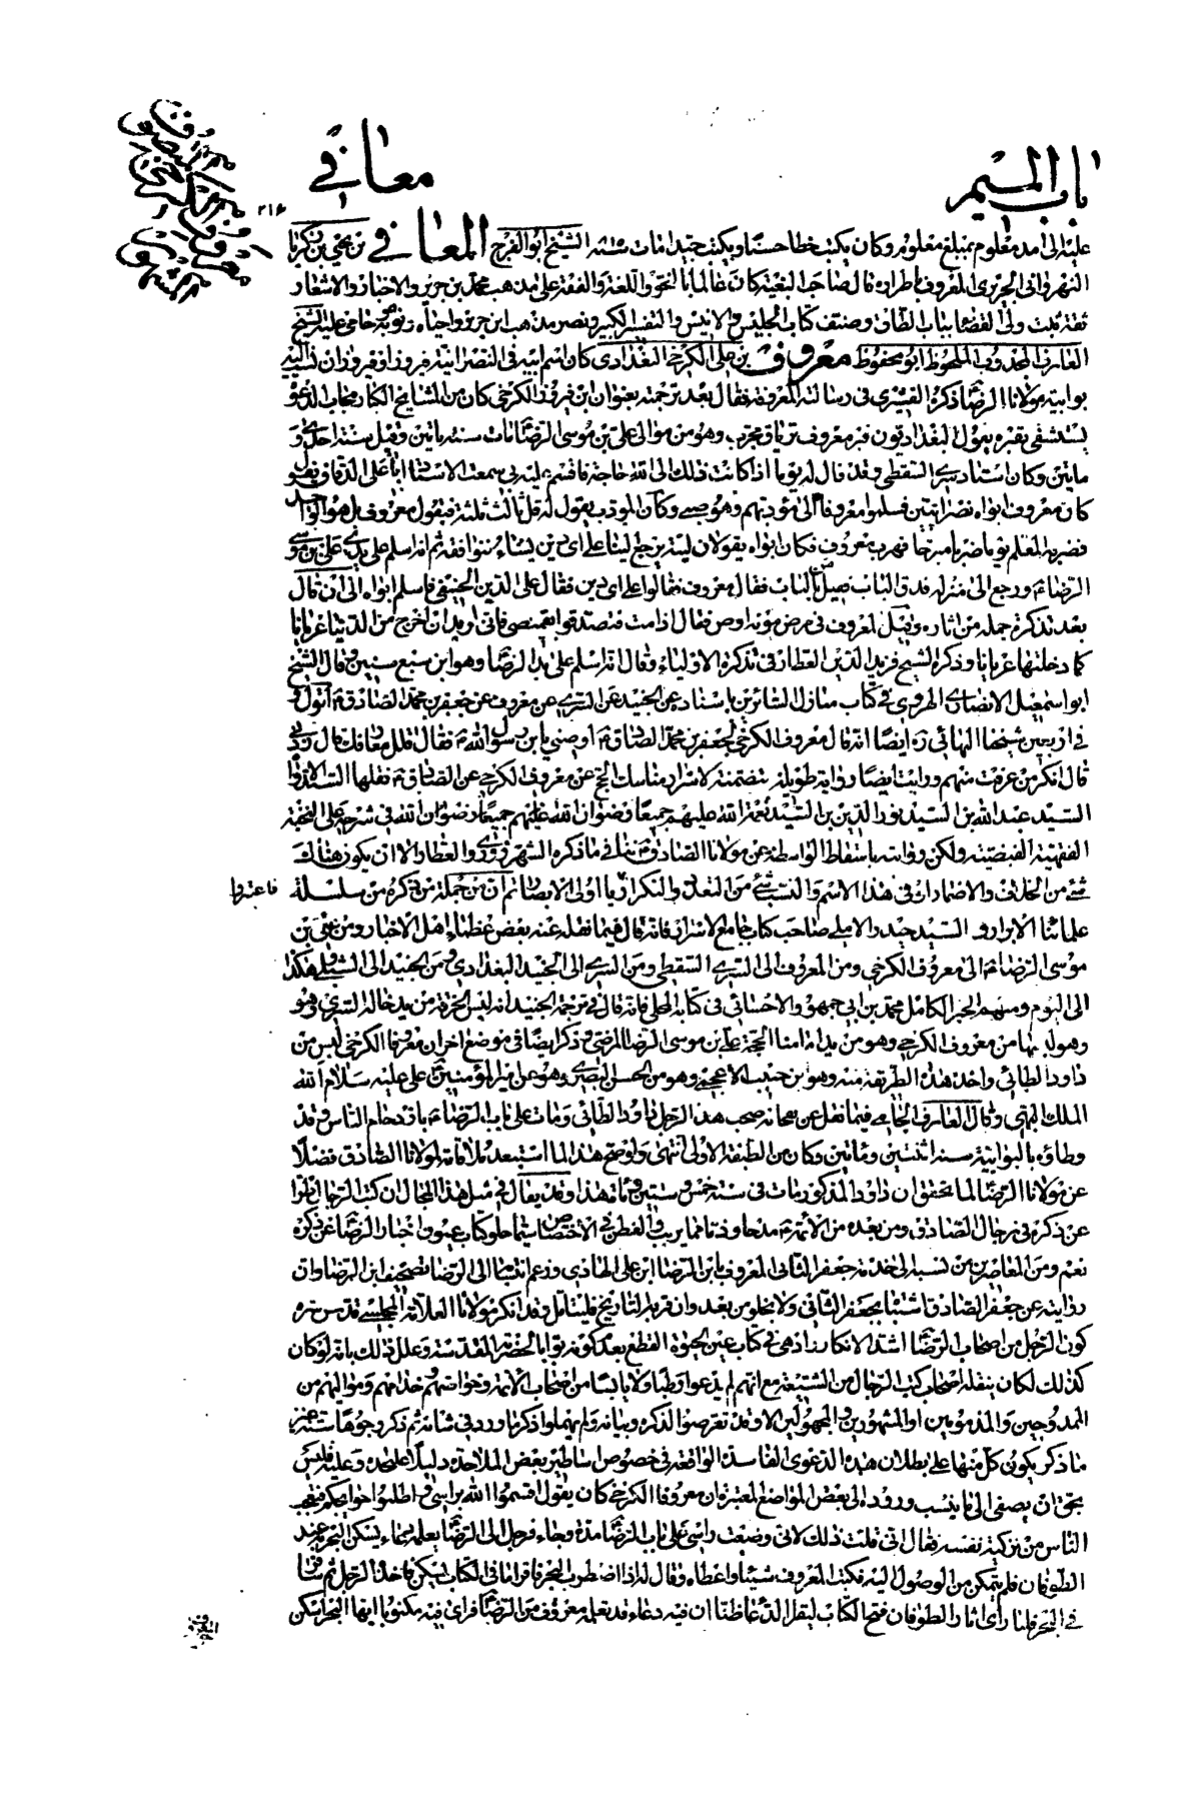 باب الميم
معافي
٢١٤
عليه الى امد معلوم بمبلغ معلوم وكان يكتب خطا حسنا ويكتب جيدا مات سنة الشيخ ابو الفرج المعافي بن يحيى بن زكريا
النهرواني الجريري المعروف بابن طراره قال صاحب البغية كان عالما بالنحو واللغة والفقه على مذهب محمد بن جرير والاخبار والاشعار
ثقة ثبت ولي القضا بباب الطاق وصنف كتاب الجليس والانيس والتفسير الكبير ونصر مذهب ابن جرير واحياه
العارف المجذوب الملحوظ ابو محفوظ معروف بن علي الكرخي البغدادي كان اسم ابيه في النصرانية فيروز او فيروزان
بوابية مولانا الرضا ذكره القشيري في رسالته المعروفة فقال بعد ترجمته بعنوان ابن فيروز الكرخي كان من المشايخ الكبار مجاب الدعوة
يستشفى بقبره يقول البغداديون قبر معروف ترياق مجرب وهو من موالي علي بن موسى الرضا مات سنة مأتين وقيل سنة احدى و
مأتين وكان استاد سري السقطي وقد قال له يوما اذا كانت لك الى الله حاجة فاقسم عليه بي سمعت الاستاد ابا علي الدقاق يقول
كان معروف ابواه نصرانيين فسلموا معروفا الى مؤدبهم وهو صبي وكان المؤدب يقول له قل ثالث ثلثة فيقول معروف بل هو الواحد
فضربه المعلم يوما ضربا مبرحا فهرب معروف فكان ابواه يقولان ليته يرجع الينا على اي دين يشاء فنوافقه ثم انه اسلم على يدي علي بن موسى
الرضا ورجع الى منزله فدق الباب فقيل من بالباب فقال معروف فقالوا على اي دين فقال على الدين الحنيفي فاسلم ابواه الى ان قال
بعد تذكرة جملة من اثاره وقيل لمعروف في مرض موته اوص فقال اذا مت فتصدقوا بقميصي فاني اريد ان اخرج من الدنيا عريانا
كما دخلتها عريانا وذكره الشيخ فريد الدين العطار في تذكرة الاولياء وقال انه اسلم على يد الرضا وهو ابن سبع سنين وقال الشيخ
ابو اسمعيل الانصاري الهروي في كتاب منازل السائرين باسناده عن الجنيد عن السري عن معروف عن جعفر بن محمد الصادق اقول و
في اربعين شيخنا البهائي ره ايضا انه قال معروف الكرخي لجعفر بن محمد الصادق اوصني يا بن رسول الله فقال اقلل معارفك قال زدني
قال انكر من عرفت منهم ورايت ايضا رواية طويلة متضمنة لاسرار مناسك الحج عن معروف الكرخي عن الصادق نقلها السيد الاند
السيد عبد الله بن السيد نور الدين بن السيد نعمة الله عليهم جميعا رضوان الله في شرحه على النخبة
الفقهية الفيضية ولكن رواته باسقاط الواسطة عن مولانا الصادق ينافي ما ذكره القشيري والعطار الا ان يكون هناك
شيء من الخلاف والاضمار او في هذا الاسم والنسب شيء من التعدد والتكرار يا اولي الابصار ثم ان من جملة من ذكره من سلسلة
فاعتبروا
علمائنا الابرار هو السيد حيدر الاملي صاحب كتاب جامع الاسرار فانه قال فيما نقله عنه بعض عظماء اهل الاخبار ومن علي بن
موسى الرضا الى معروف الكرخي ومن المعروف الى السري السقطي ومن السري الى الجنيد البغدادي ومن الجنيد الى الشبلي هكذا
الى اليوم ومنهم الحبر الكامل محمد بن ابي جمهور الاحسائي في كتابه المجلي فانه قال في ترجمة الجنيد انه لبس الخرقة من يد خاله السري وهو
وهو لبسها من معروف الكرخي وهو من يد امامنا الحجة علي بن موسى الرضا المرتضى وذكر ايضا في موضع اخر ان معروفا الكرخي لبس من
داود الطائي واخذ هذه الطريقة منه وهو من حبيب الاعجمي وهو من الحسن البصري وهو عن امير المؤمنين علي عليه سلام الله
الملك المهدي وقال العارف الجامي فيما نقل عن نفحاته صحب هذا الرجل داود الطائي ومات على باب الرضا بازدحام الناس وقد
وطاؤه بالبوابية سنة اثنتين ومأتين وكان من الطبقة الاولى انتهى ولوضح هذا لما استبعد ملاقاته لمولانا الصادق فضلا
عن مولانا الرضا لما يحقق ان داود المذكور مات في سنة خمس وستين ومأة هذا وقد يقال في مثل هذا المجال ان كتب الرجال خلوا
عن ذكره في رجال الصادق ومن بعده من الائمة مدحا وذما مما يريب الفطن في الاختصاص سيما خلو كتاب عيون اخبار الرضا عن ذكره
نعم ومن المعاصرين من نسبه الى خدمة جعفر الثاني المعروف بابن الرضا ابن علي الهادي وزعم انتسابه الى الرضا تصحيف ابن الرضا وان
روايته عن جعفر الصادق اشتباه بجعفر الثاني ولا يخلو من بعد وان قربه التاريخ فليتأمل وقد انكر مولانا العلامة المجلسي قدس سره
كون الرجل من اصحاب الرضا اشد الانكار في كتاب عين الحيوة القطع بعد كونه بوابا لحضرته المقدسة وعلل ذلك بانه لو كان
كذلك لكان ينقله اصحاب كتب الرجال من الشيعة مع انهم لم يدعوا رطبا ولا يابسا من اصحاب الائمة وخواصهم وخدامهم ومواليهم من
الممدوحين والمذمومين او المشهورين والمجهولين الا وقد تعرضوا لذكره وبيانه ولم يهملوا ذكر ما ورد في شانه ثم ذكر وجوها ستة غير
ما ذكر يكون كل منها على بطلان هذه الدعوى الفاسدة الواقعة في خصوص اساطير بعض الملاحدة دليلا على حده وعليه فليس
بحق ان يصغى الى ما ينسب وروده الى بعض المواضع المعتبرة ان معروفا الكرخي كان يقول اقسموا الله براسي واطلبوا حوائجكم فتعجب
الناس من تزكية نفسه فقال اني قلت ذلك لاني وضعت راسي على باب الرضا مدة وجاء رجل الى الرضا يعلمه دعاء يسكن البحر عند
الطوفان فلم يتمكن من الوصول اليه فكتب المعروف شيئا واعطاه وقال له اذا اضطرب البحر فاقرا ما في الكتاب يسكن فاخذ الرجل ثم سافر
في البحر فلما راى اثار الطوفان فتح الكتاب ليقرا الدعا ظنا ان فيه دعاء قد تعلمه معروف من الرضا فراى فيه مكتوبا ايها البحر اسكن